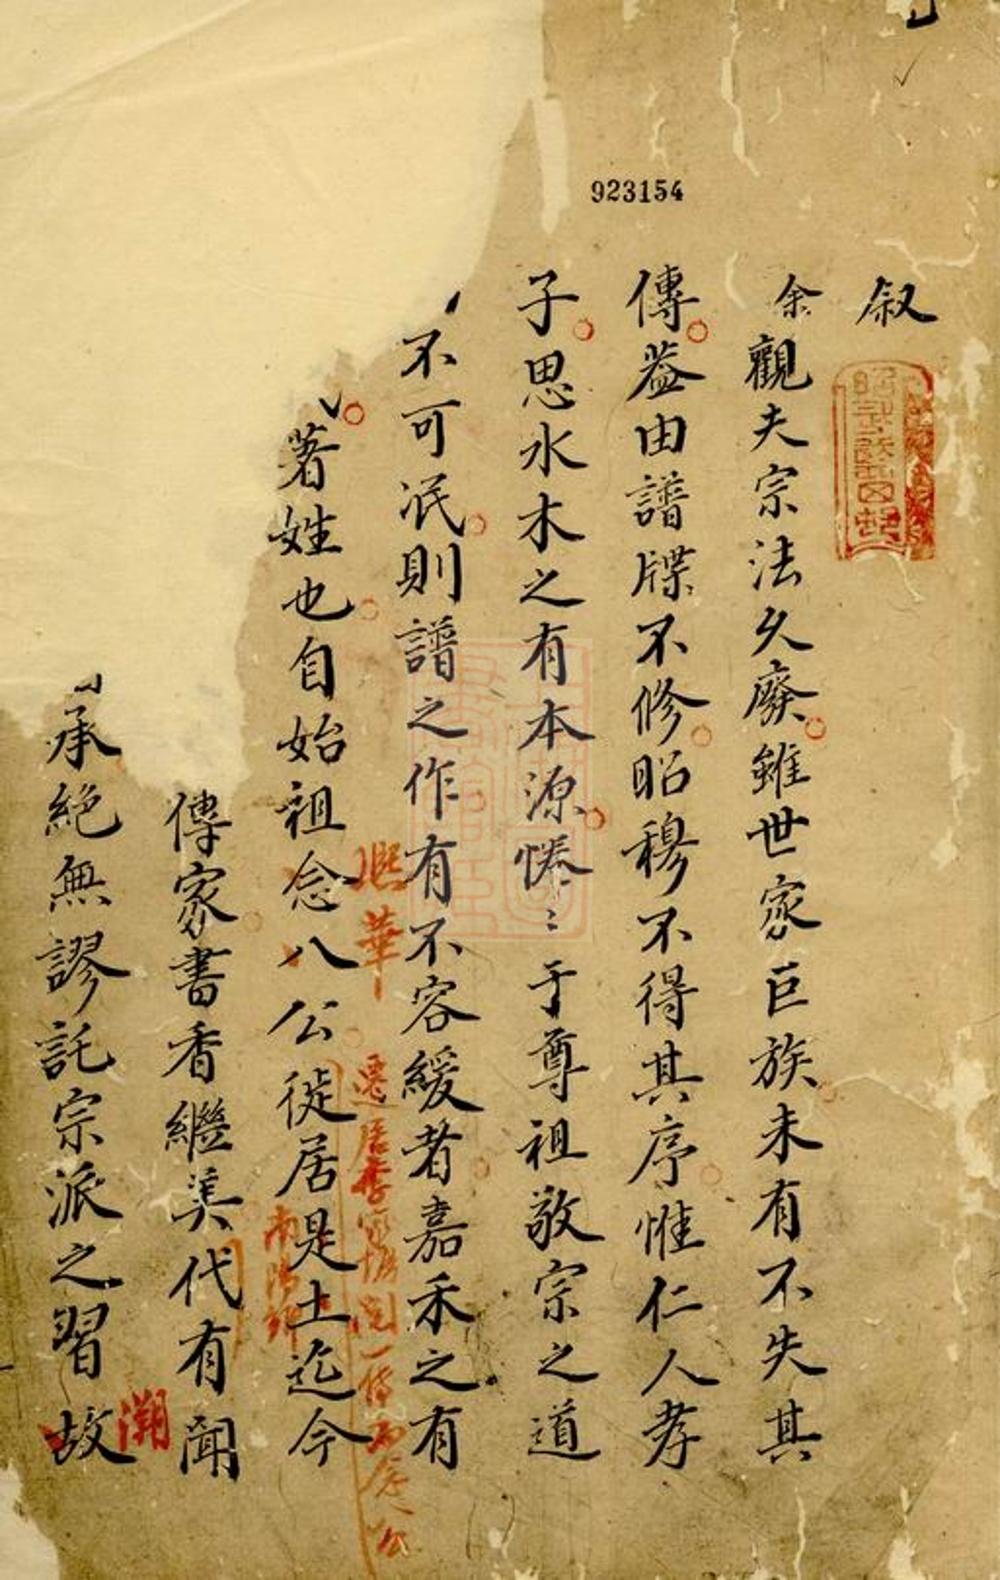 923154
叙
余觀夫宗法久廢雖世家巨族未有不失其
傳蓋由譜牒不修昭穆不得其序惟仁人孝
子思水木之有本源惓〻于尊祖敬宗之道
不可泯則譜之作有不容緩者嘉禾之有
著姓也自始祖念八公徙居是土迄今
傳家書香繼美代有聞
承絕無謬託宗派之習故
熙華
遷居
一傳而
公
南陽郡
溯